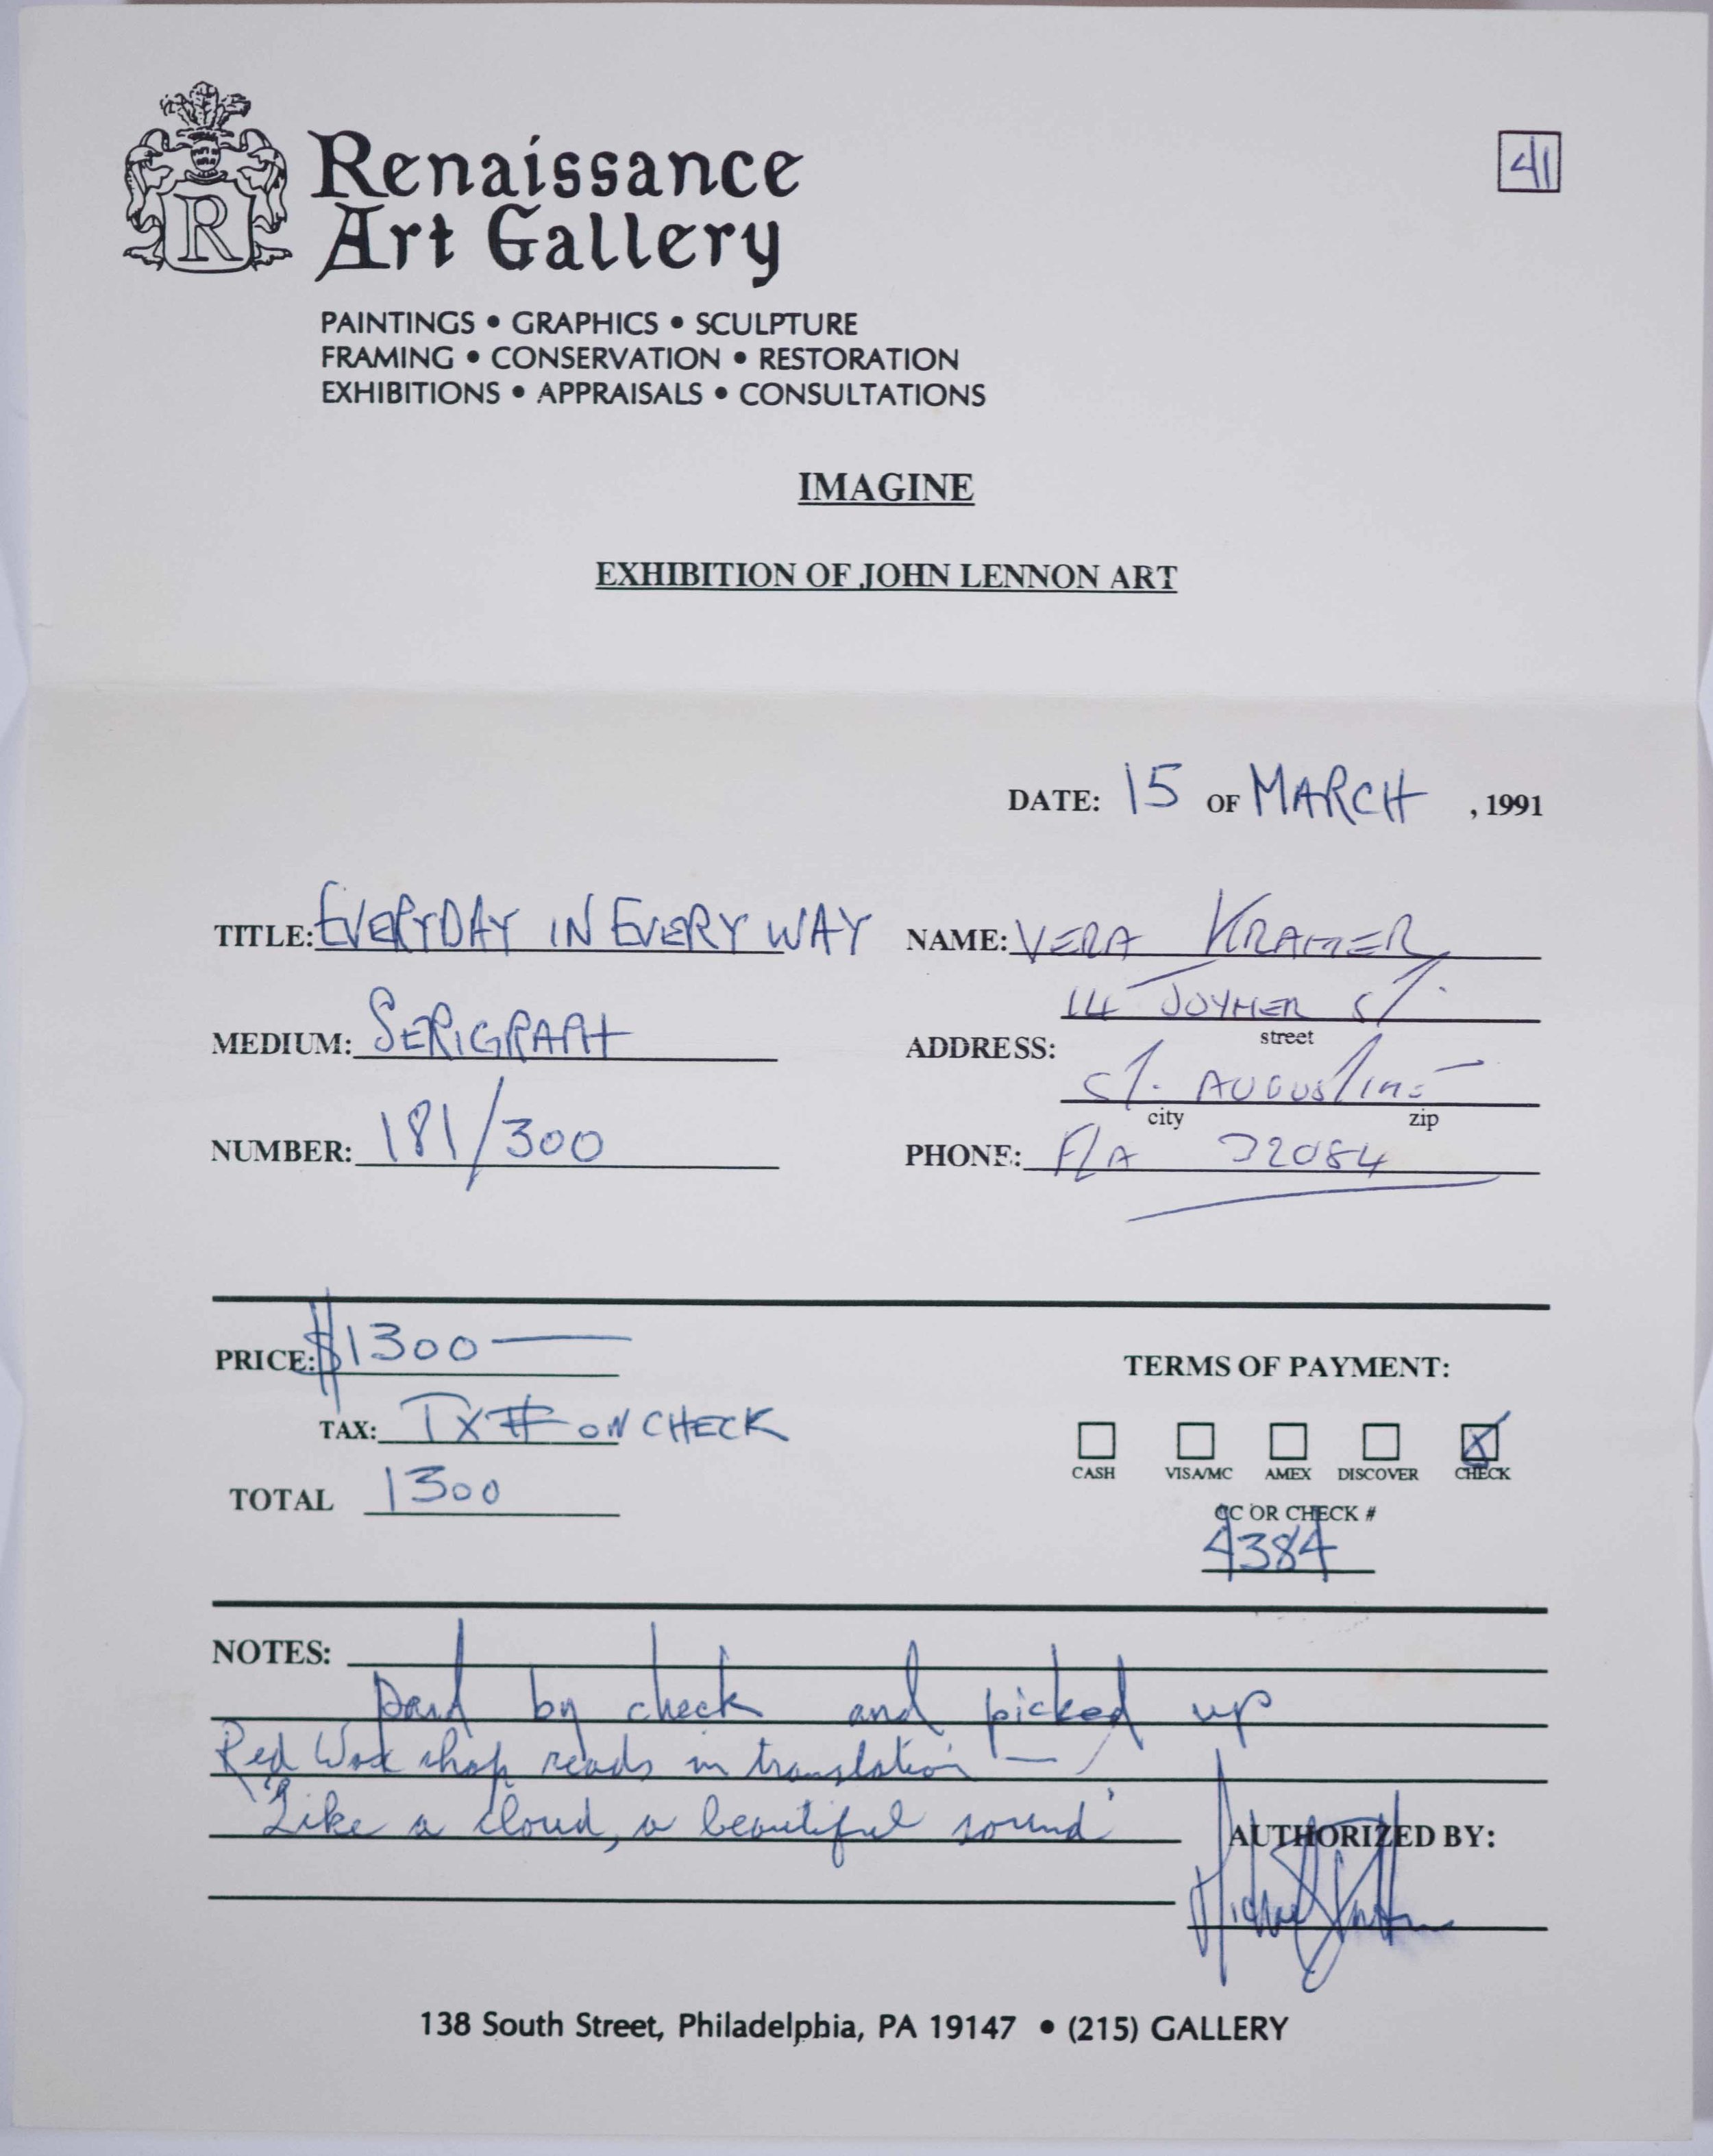 Renaissance
Art Gallery
41
PAINTINGS • GRAPHICS • SCULPTURE
FRAMING • CONSERVATION • RESTORATION
EXHIBITIONS • APPRAISALS • CONSULTATIONS
IMAGINE
EXHIBITION OF JOHN LENNON ART
DATE: 15 OF MARCH , 1991
TITLE: EVERYDAY IN EVERY WAY
NAME: VERA KRAMER
14 ST.
street
MEDIUM: SERIGRAPH
ADDRESS:
ST. AUGUSTINE
city zip
NUMBER: 181/300
PHONE: FLA 32084
PRICE: $1300
TERMS OF PAYMENT:
TAX: TX # ON CHECK
CASH VISA/MC AMEX DISCOVER CHECK
TOTAL 1300
CC OR CHECK #
4384
NOTES:
paid by check and picked up
Red Wax chop reads in translation —
"Like a cloud, a beautiful sound"
AUTHORIZED BY:
138 South Street, Philadelphia, PA 19147 • (215) GALLERY
R